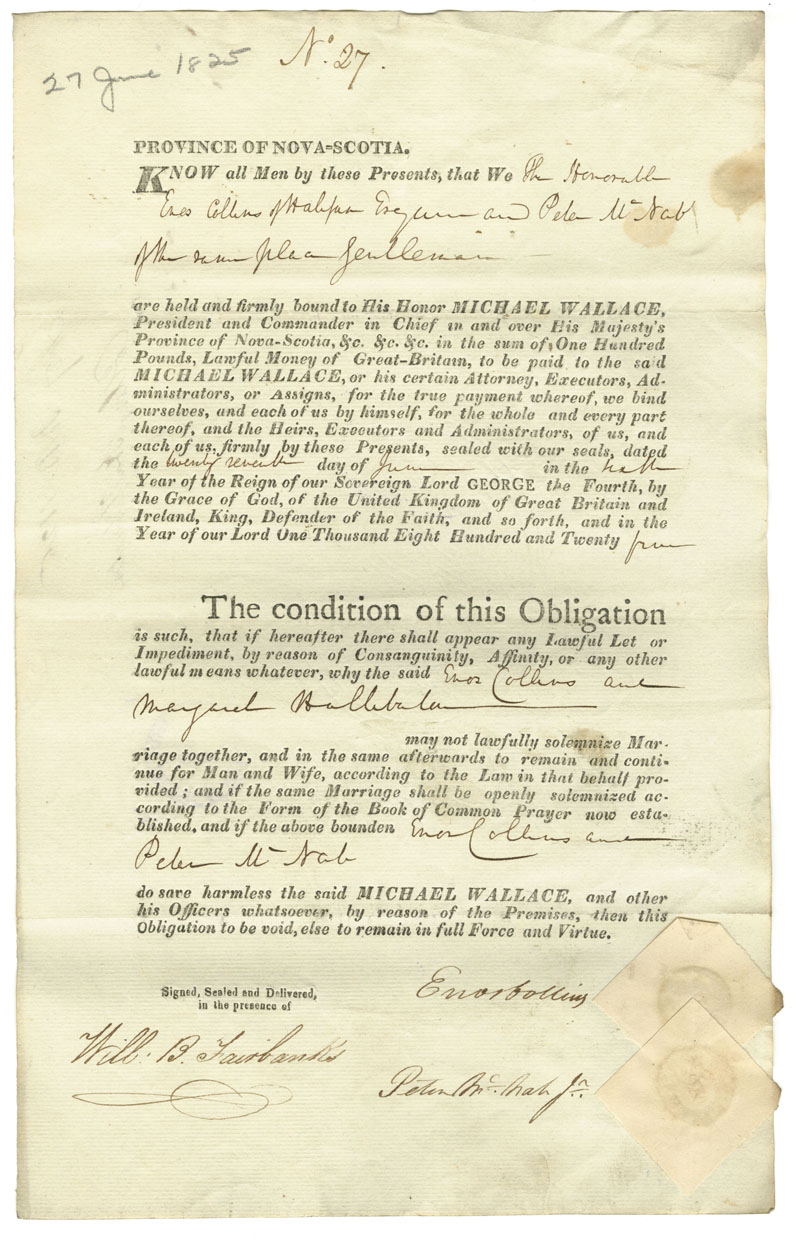 27 June 1825
No. 27.
PROVINCE OF NOVA=SCOTIA.
KNOW all Men by these Presents, that We The Honorable
Enos Collins of Halifax Esquire and Peter Mc Nab
of the same place Gentleman
are held and firmly bound to His Honor MICHAEL WALLACE,
President and Commander in Chief in and over His Majesty's
Province of Nova-Scotia, &c. &c. &c. in the sum of, One Hundred
Pounds, Lawful Money of Great-Britain, to be paid to the said
MICHAEL WALLACE, or his certain Attorney, Executors, Ad-
ministrators, or Assigns, for the true payment whereof, we bind
ourselves, and each of us by himself, for the whole and every part
thereof, and the Heirs, Executors and Administrators, of us, and
each of us, firmly by these Presents, sealed with our seals, dated
the twenty seventh day of June in the sixth
Year of the Reign of our Sovereign Lord GEORGE the Fourth, by
the Grace of God, of the United Kingdom of Great Britain and
Ireland, King, Defender of the Faith, and so forth, and in the
Year of our Lord One Thousand Eight Hundred and Twenty five
The condition of this Obligation
is such, that if hereafter there shall appear any Lawful Let or
Impediment, by reason of Consanguinity, Affinity, or any other
lawful means whatever, why the said Enos Collins and
Margaret Halliburton
may not lawfully solemnize Mar-
riage together, and in the same afterwards to remain and conti-
nue for Man and Wife, according to the Law in that behalf pro-
vided; and if the same Marriage shall be openly solemnized ac-
cording to the Form of the Book of Common Prayer now esta-
blished, and if the above bounden Enos Collins and
Peter Mc Nab
do save harmless the said MICHAEL WALLACE, and other
his Officers whatsoever, by reason of the Premises, then this
Obligation to be void, else to remain in full Force and Virtue.
Signed, Sealed and Delivered,
in the presence of
Enos Collins
Will: B. Fairbanks
Peter Mc. Nab Jr.